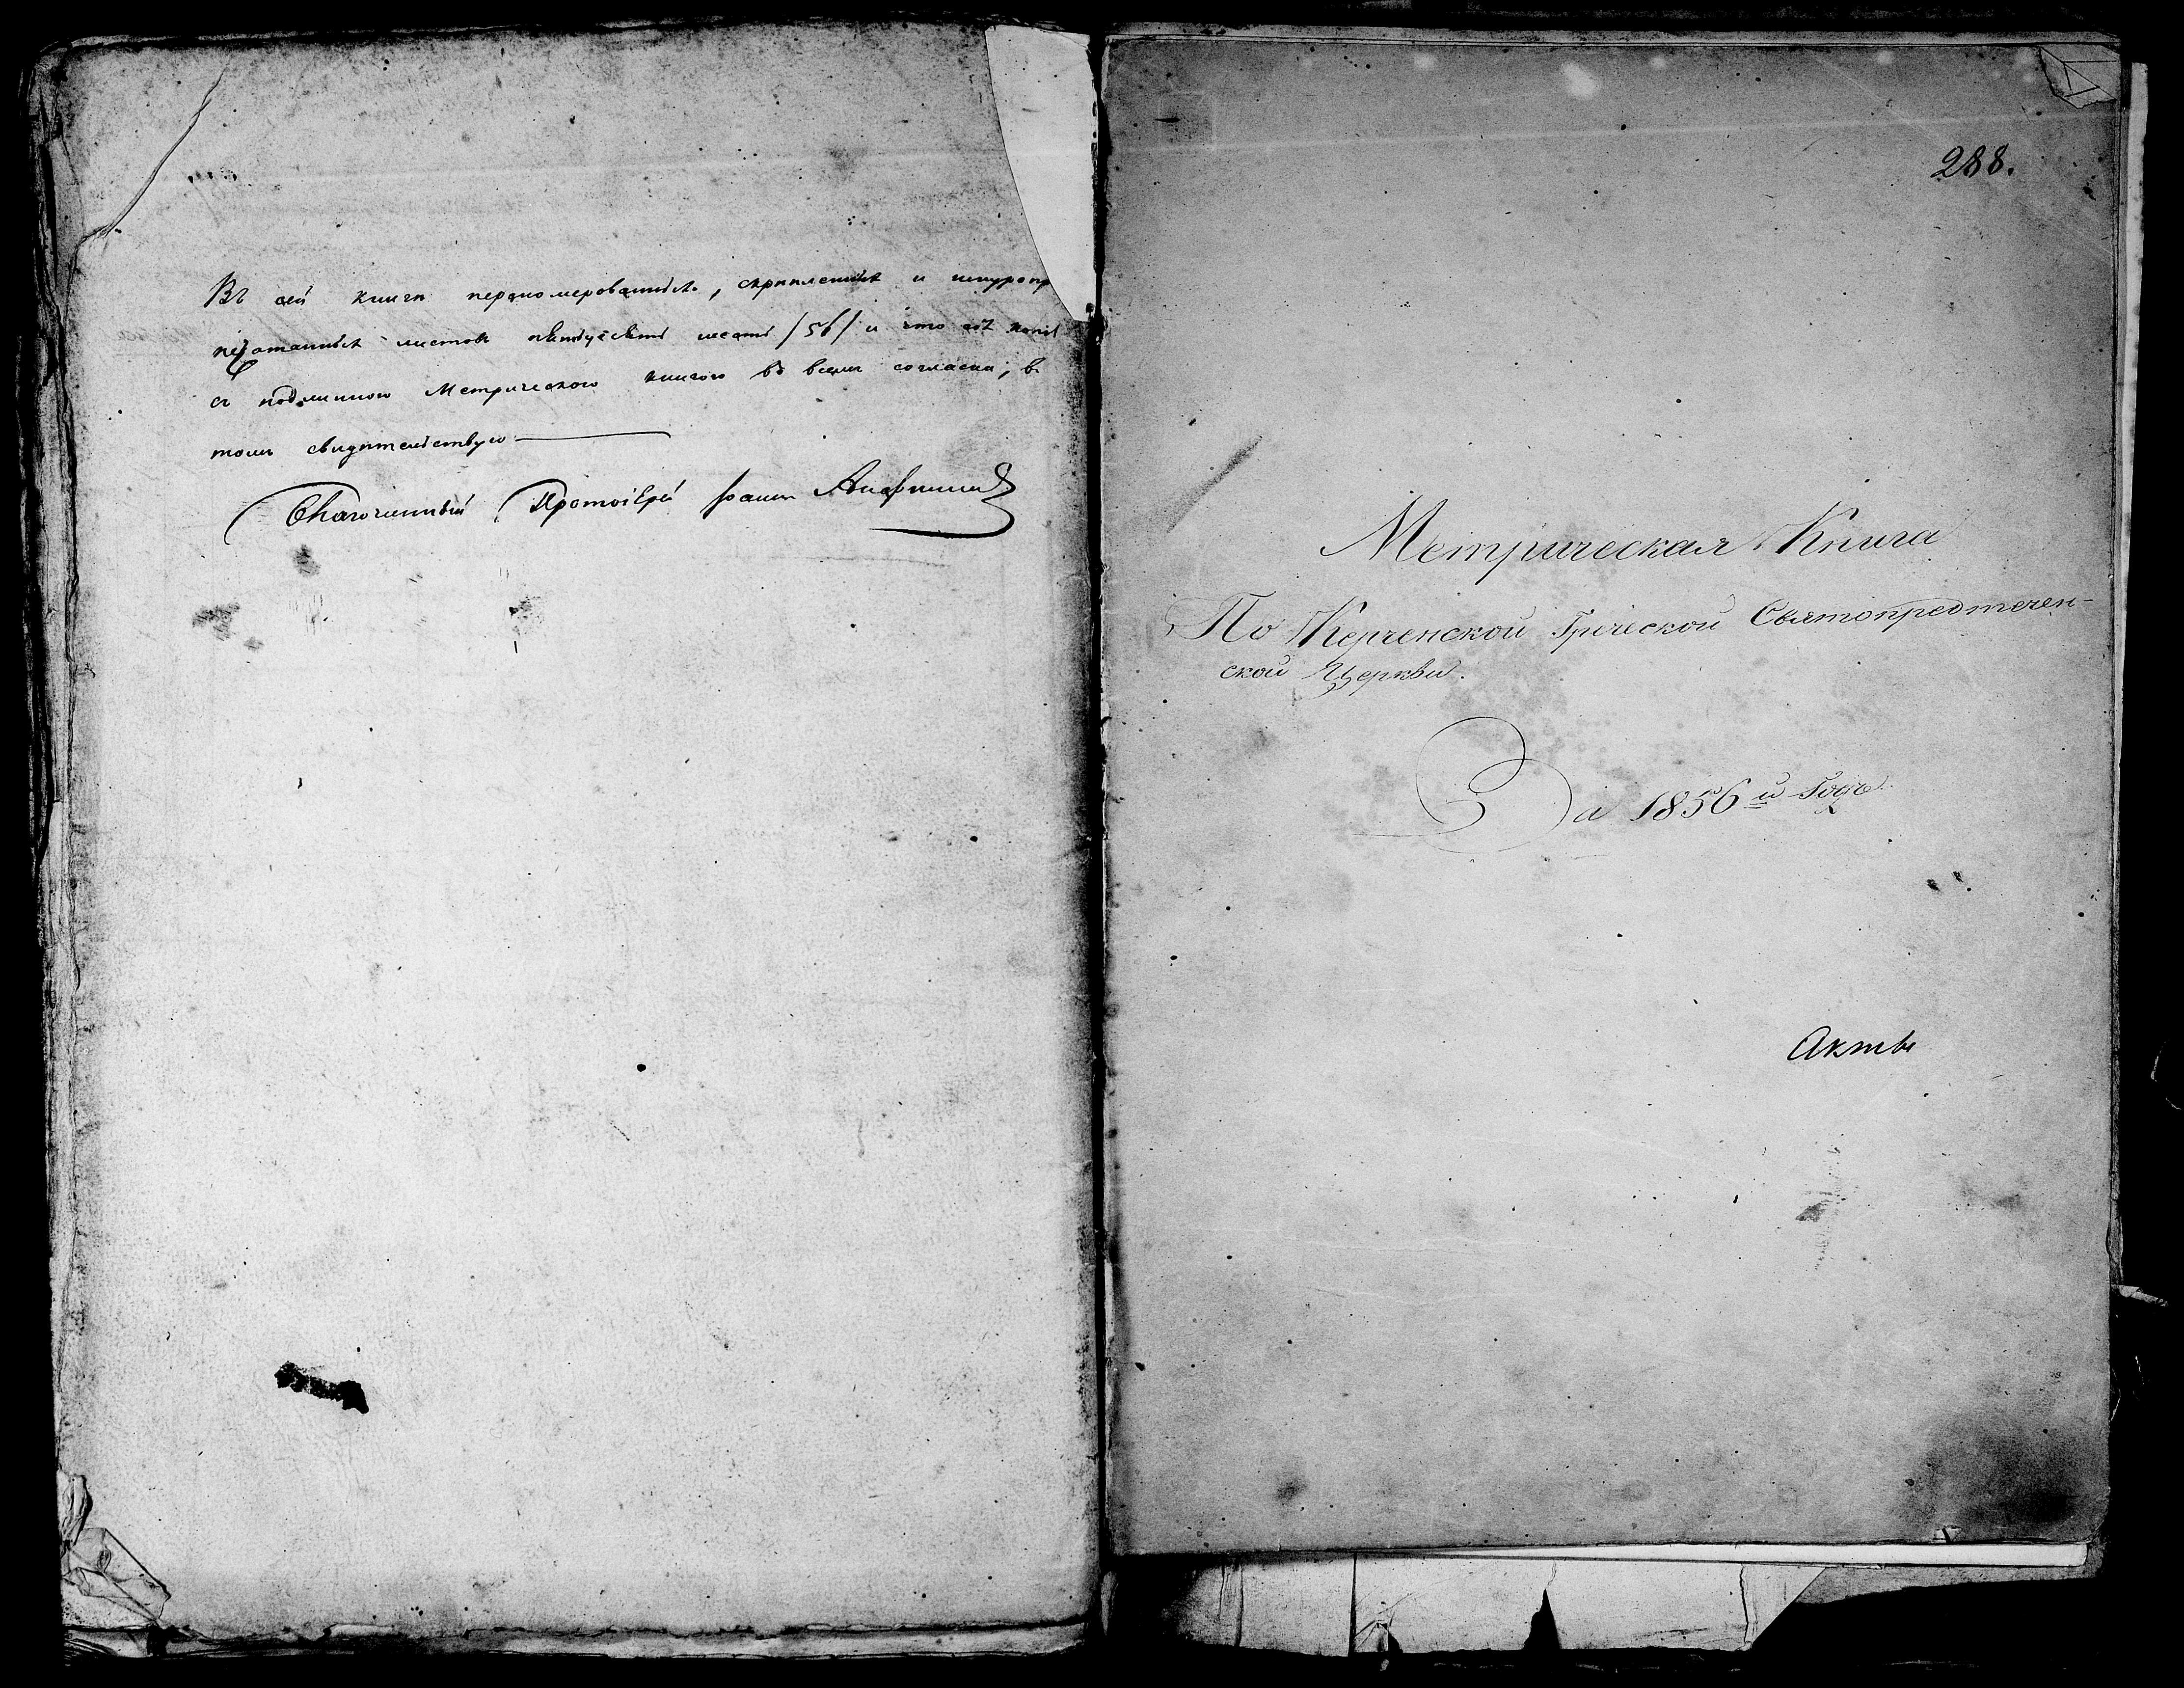 Въ сей книги перономерованныхъ, скрѣпленныхъ и шнуропр
печатанныхъ листовъ пятьдесятъ шесть /56/ и что сія копія
съ подлинною Метрическою книгою во всемъ согласна, въ
томъ свидѣтельствую
Благочинный Протоіерей Іоаннъ
288.
Метрическая Книга
По Керченской Греческой Святопредтечен-
ской Церкви.
За 1856й Годъ.
Акты